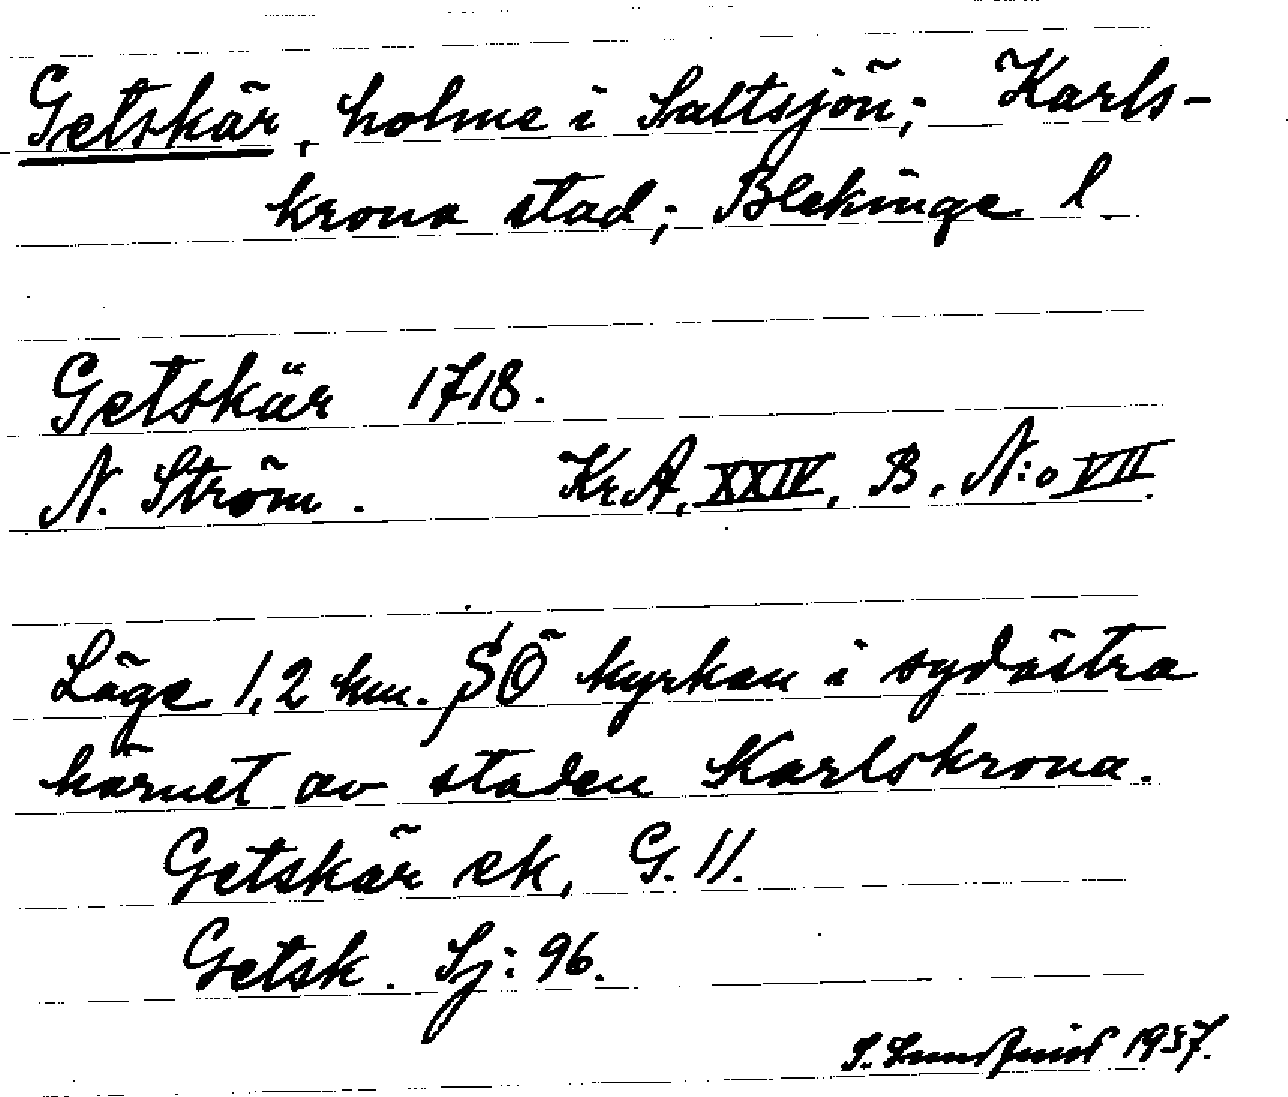 Getskär, holme i Saltsjön; Karls-
krona stad; Blekinge l.
Getskär 1718.
N. Ström. Kr.A, XXIV, B. N:o VII.
Läge 1,2 km. SÖ kyrkan i sydöstra
hörnet av staden Karlskrona.
Getskär ek, G. 11.
Getsk. Sj: 96.
S. 1937.